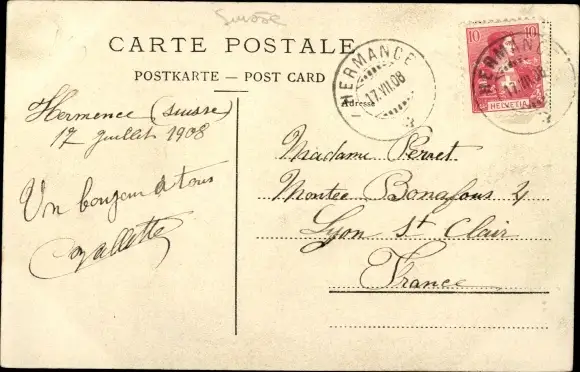 Suisse
CARTE POSTALE
POSTKARTE — POST CARD
Adresse
HERMANCE
17.VII.08
10 10
HELVETIA
HERMANCE
17.VII.08
Hermence (suisse)
17 juillet 1908
Un bonjour à tous
Madame Perret
Montée Bonafous 4
Lyon St Clair
France